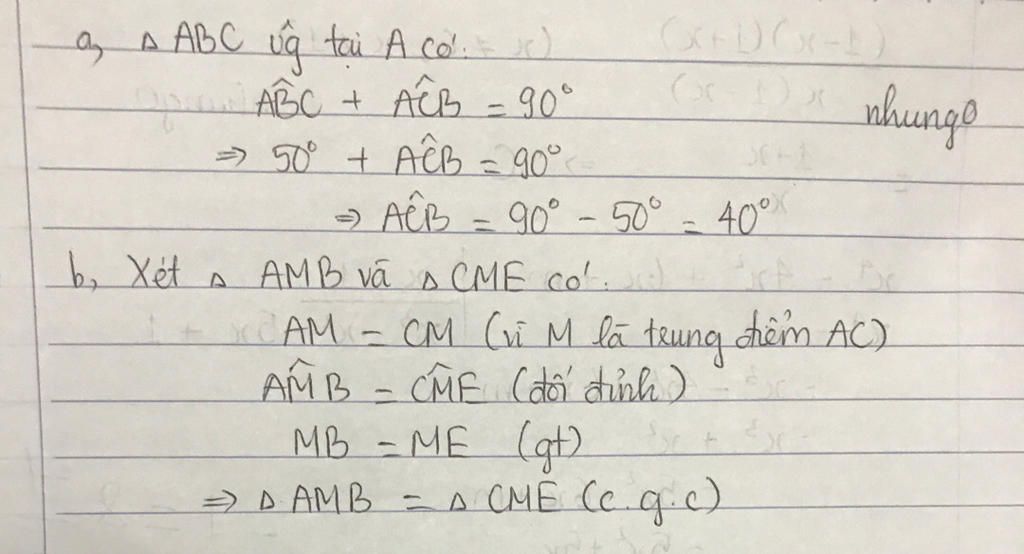 a, △ ABC vg̃ tại A có:
ABĈ + AĈB = 90°
nhung0
⇒ 50° + AĈB = 90°
⇒ AĈB = 90° - 50° = 40°
b, Xét △ AMB và △ CME có:
AM = CM (vì M là trung điểm AC)
AM̂B = CM̂E (đối đỉnh)
MB = ME (gt)
⇒ △ AMB = △ CME (c.g.c)